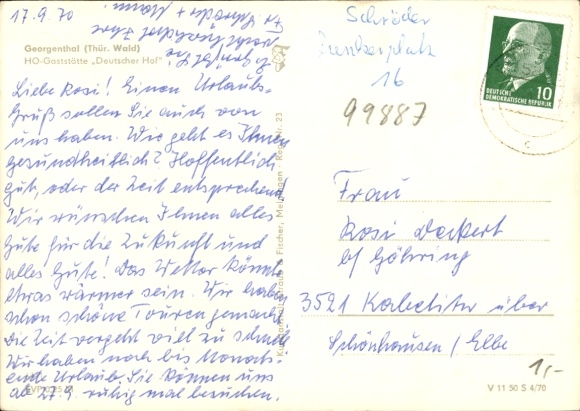 17.9.70
Georgenthal (Thür. Wald)
HO-Gaststätte „Deutscher Hof"
Liebe Rosi! Einen Urlaubs-
gruß sollen Sie auch von
uns haben. Wie geht es Ihnen
gesundheitlich? Hoffentlich
gut, oder der Zeit entsprechend.
Wir wünschen Ihnen alles
Gute für die Zukunft und
alles Gute! Das Wetter könnte
etwas wärmer sein. Wir haben
schon schöne Touren gemacht.
Die Zeit vergeht viel zu schnell.
Wir haben noch bis Monats-
ende Urlaub. Sie können uns
ab 27.9. ruhig mal besuchen.
Es grüßt Sie
recht herzlichst Ihre
Fr. Schröder + Mann.
Schröder
16
99887
10
DEUTSCHE
DEMOKRATISCHE REPUBLIK
Frau
Rosi Deckert
b/ Göhring
3521 Kabelitz über
Schönhausen / Elbe
1,-
V 11 50 S 4/70